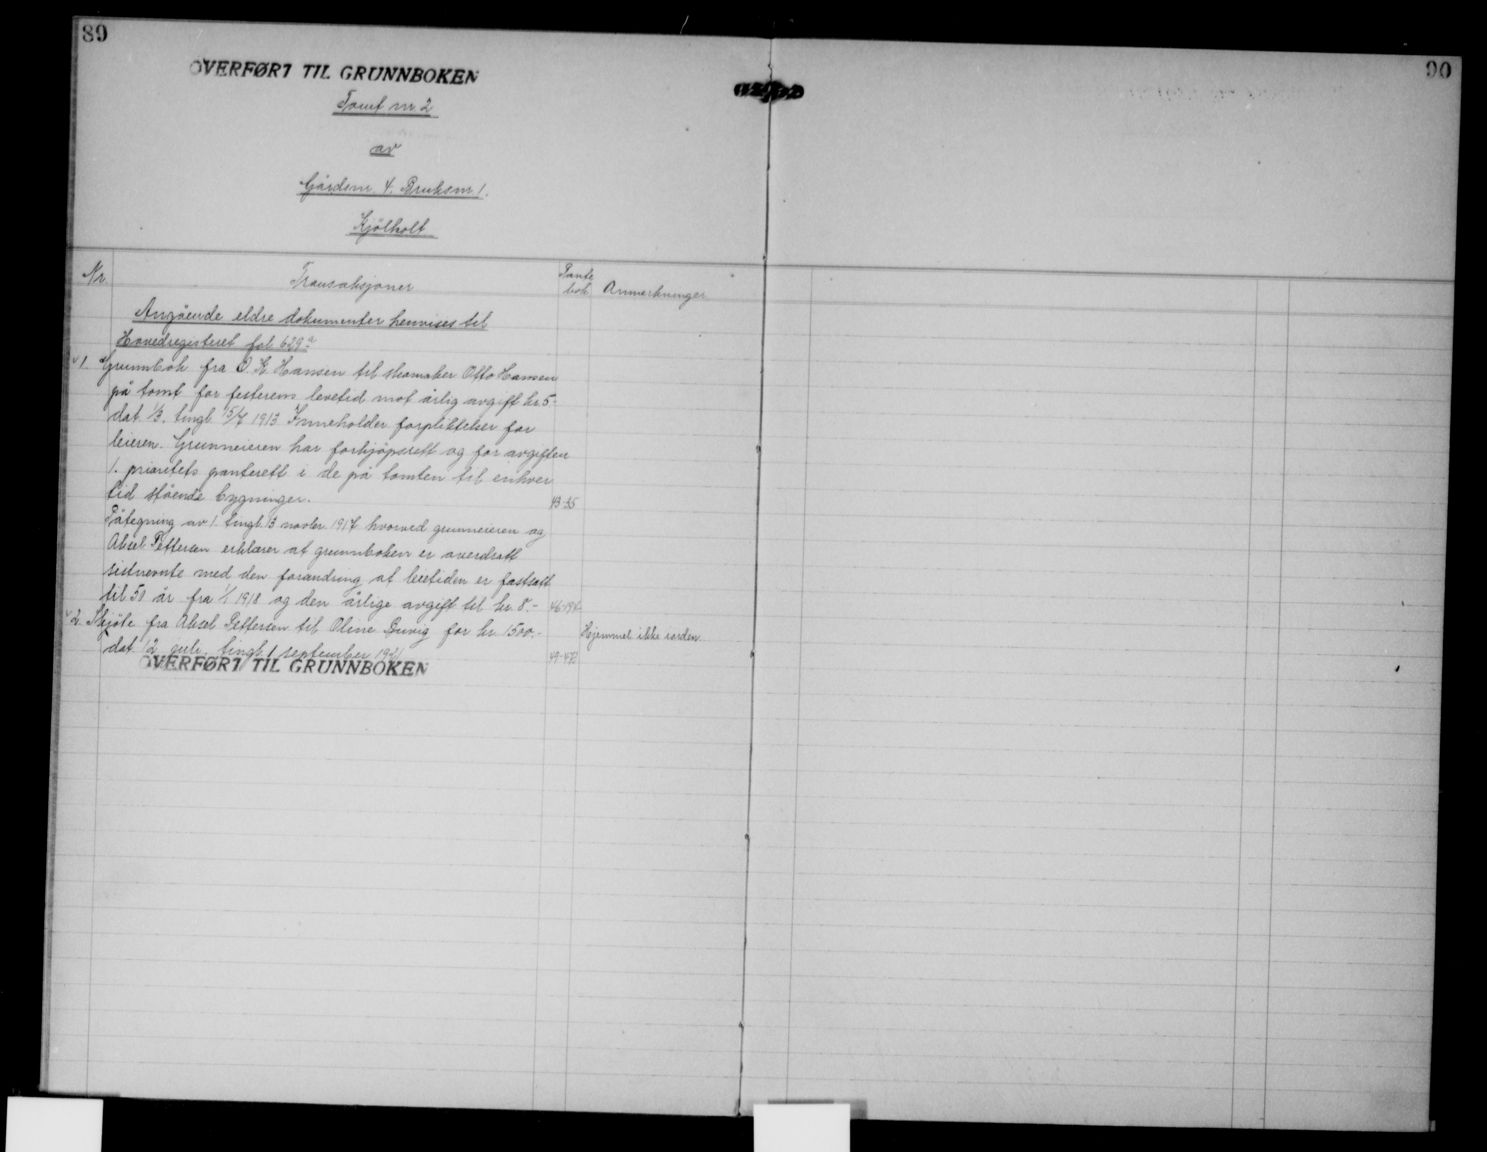 89
90
OVERFØRT TIL GRUNNBOKEN
Tomt nr 2
av
Gårdsnr. 4. Bruksnr 1.
Kjölholt
Nr. Transaksjoner Pante bok Anmerkninger
Angående eldre dokumenter henvises til
Hovedregisteret fol 629a
1. Grunnbok fra O. K. Hansen til skomaker Otto Hansen
på tomt for festerens levetid mot årlig avgift kr. 5.-
dat. 1/3, tingl. 15/4 1913. Inneholder forpliktelser for
leieren. Grunneieren har forkjöpsrett og for avgiften
1. prioritets panterett i de på tomten til enhver
tid stående bygninger. 43-35
Påtegning av 1. tingl. 13 novbr. 1917 hvorved grunneieren og
Aksel Pettersen erklærer at grunnboken er overdratt
sistnevnte med den forandring at leietiden er fastsatt
til 50 år fra 1/1 1918 og den årlige avgift til kr. 8.-
2. Skjöte fra Aksel Pettersen til Oline Buvig for kr. 1500.- Hjemmel ikke iorden
dat. 12 juli, tingl. 1 september 1921
OVERFØRT TIL GRUNNBOKEN